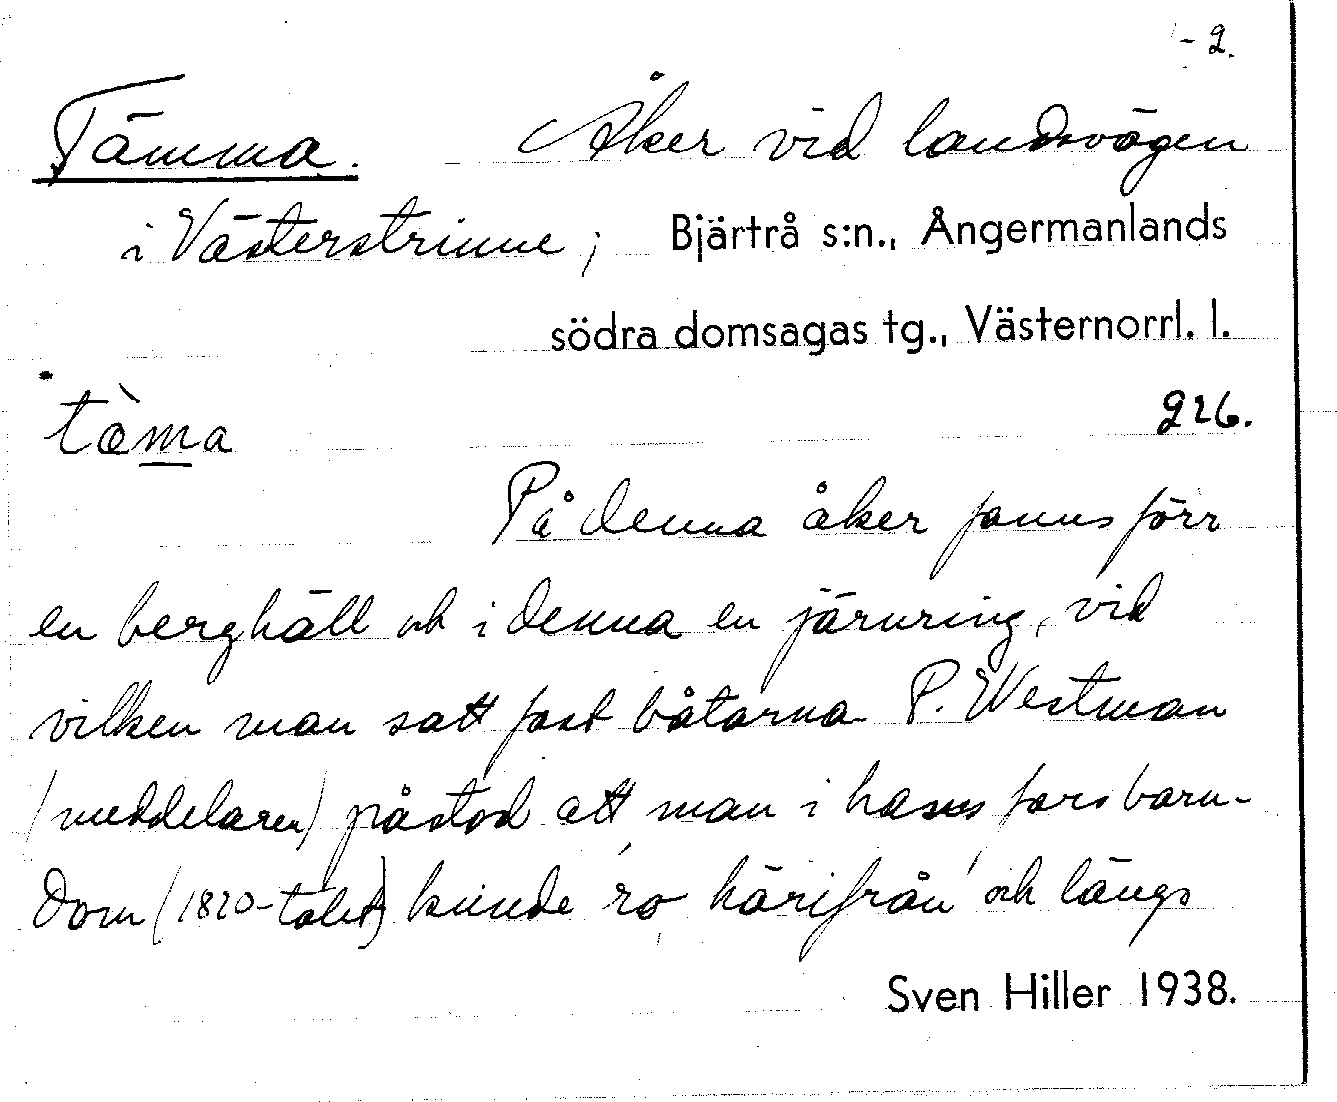 - 2.
Tämma. Åker vid landsvägen
i Västerstrinne; Bjärtrå s:n., Ångermanlands
södra domsagas tg., Västernorrl. l.
tæ̀ma 226.
På denna åker fanns förr
en berghäll och i denna en järnring, vid
vilken man satt fast båtarna. P. Westman
(meddelaren) påstod att man i hans fars barn-
dom (1820-talet) kunde ro härifrån och längs
Sven Hiller 1938.